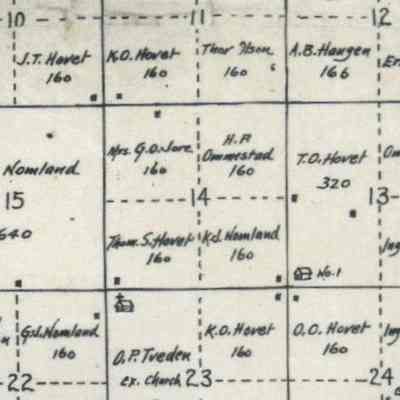 10
11
12
J.T. Hovet
160
K.O. Hovet
160
160
A.B. Haugen
166
Nomland
15
640
160
H.P.
Ommestad
160
14
T.O. Hovet
320
13
Thom. S. Hovet
160
K.S. Nomland
160
No. 1
G.S. Nomland
160
O.P. Tveden
ex. Church
K.O. Hovet
160
O.O. Hovet
160
22
23
24